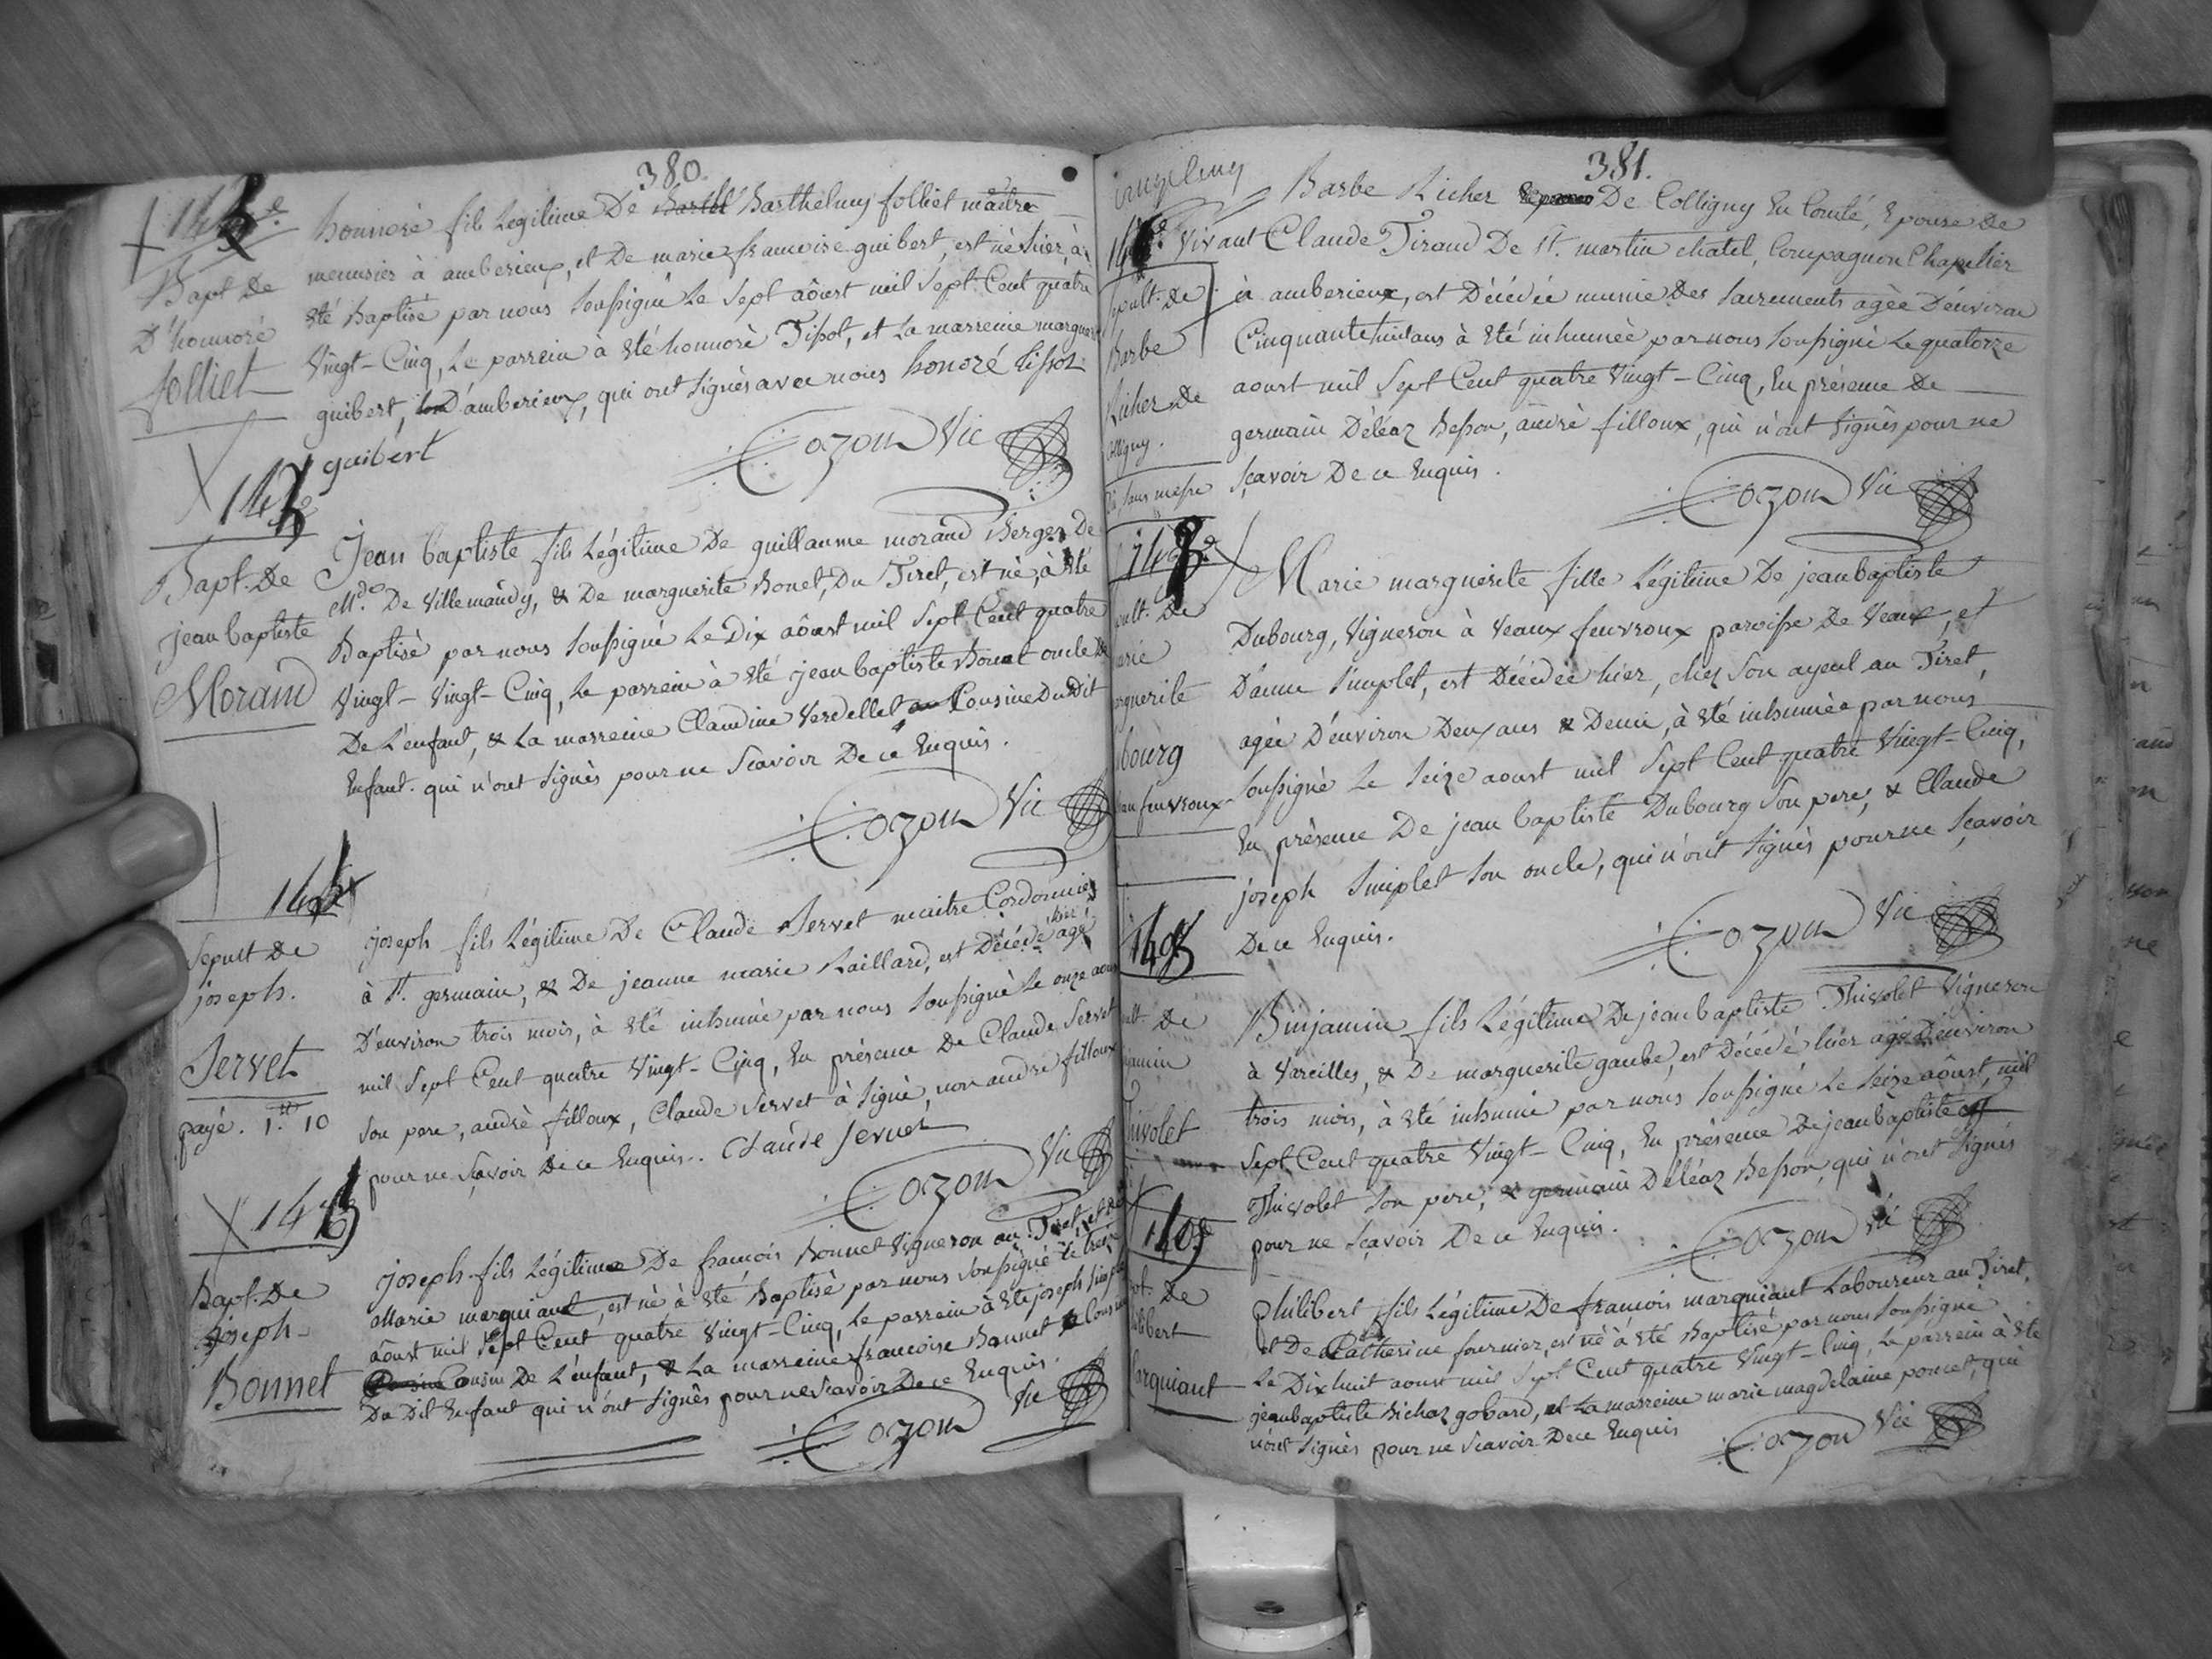 380.
Bapt De
D'honnoré
folliet
honnoré fils Legitime De Barthelmy folliet maitre
menusier à amberieux, et De marie francoise guibert, est nè hier, à
été Baptisé par nous soussigné Le Sept aôust mil Sept Cent quatre
Vingt-Cinq, Le parrein à été honnorè Tissot, et La marreine
guibert, D'amberieux, qui ont signés avec nous honoré tissot
guibert
Cozon Vic
Bapt. De
jean baptiste
Morand
Jean baptiste fils Légitime De guillaume morand Berger De
Md. De Villemandy, & De marguerite Bonet, Du Tiret, est nè, à été
Baptisè par nous soussigné Le Dix aôust mil Sept Cent quatre
Vingt-Vingt-Cinq, Le parrein à été jean baptiste Bonet oncle
De L'enfant, & La marreine Claudine Verdellet Cousine Du Dit
Enfant. qui n'ont signès pour ne Scavoir De ce Enquis.
Cozon Vic
Sepult De
joseph.
Servet
payé. 1.tt 10
joseph fils Légitime De Claude Servet maitre Cordonnier
à St. germain, & De jeanne marie Raillard, est Décédé hier agé
D'environ trois mois, à été inhumé par nous soussigné Le onze aoust
mil Sept Cent quatre Vingt-Cinq, En présence De Claude Servet
Son pere, andrè filloux, Claude Servet à Signé, non andre filloux
pour ne Sçavoir De ce Enquis.. Claude Servet
Cozon Vic
Bapt. De
joseph
Bonnet
joseph fils Légitime De francois Bonnet Vigneron au Tiret, et de
Marie marquiant, est nè à été Baptisè par nous soussigné le treize
aôust mil Sept Cent quatre Vingt-Cinq, Le parrein à été joseph
Cousin De L'enfant, & La marreine francoise Bonnet
Du Dit Enfant qui n'ont signés pour ne Scavoir De ce Enquis.
Cozon Vic
381.
Sepult. De
Barbe
Richer De
Colligny.
Barbe Richer De Colligny En Comté, Epouse De
Vivant Claude Tirand De St. martin chatel, Compagnon Chapellier
à amberieux, est Décédée munie Des Sacrements agèe D'environ
Cinquante huit ans à été inhumèe par nous soussigné Le quatorze
aoust mil Sept Cent quatre Vingt-Cinq, En présence De
germain Déléaz Besson, andrè filloux, qui n'ont signès pour ne
Sçavoir De ce Enquis.
Cozon Vic
Marie marguerite fille Légitime De jean baptiste
Dubourg, Vigneron à Veaux feuvroux paroisse De Veaux, et
D'anne Simplet, est Décédée hier, chez Son ayeul au Tiret,
agée D'environ Deux ans & Demi, à été inhumèe par nous
soussigné Le Seize aoust mil Sept Cent quatre Vingt-Cinq,
En présence De jean baptiste Dubourg Son pere, & Claude
joseph Simplet Son oncle, qui n'ont signès pour ne Sçavoir
De ce Enquis.
Cozon Vic
Binjamin fils Légitime De jean baptiste Thivolet Vigneron
à Vareilles, & De marguerite gaube, est Décédé hier agé D'environ
trois mois, à été inhumé par nous soussigné Le Seize aôust mil
Sept Cent quatre Vingt-Cinq, En présence De jean baptiste
Thivolet Son pere, & germain Déléaz Besson, qui n'ont signés
pour ne Sçavoir De ce Enquis.
Cozon Vic
philibert fils Légitime De francois marquiant Laboureur au Tiret,
et De Catherine fournier, est nè à été Baptisé par nous soussigné
Le Dixhuit aoust mil Sept Cent quatre Vingt-Cinq, Le parrein à été
jean baptiste Bichaz gobard, et La marreine marie magdelaine poncet, qui
n'ont signès pour ne Scavoir De ce Enquis
Cozon Vic